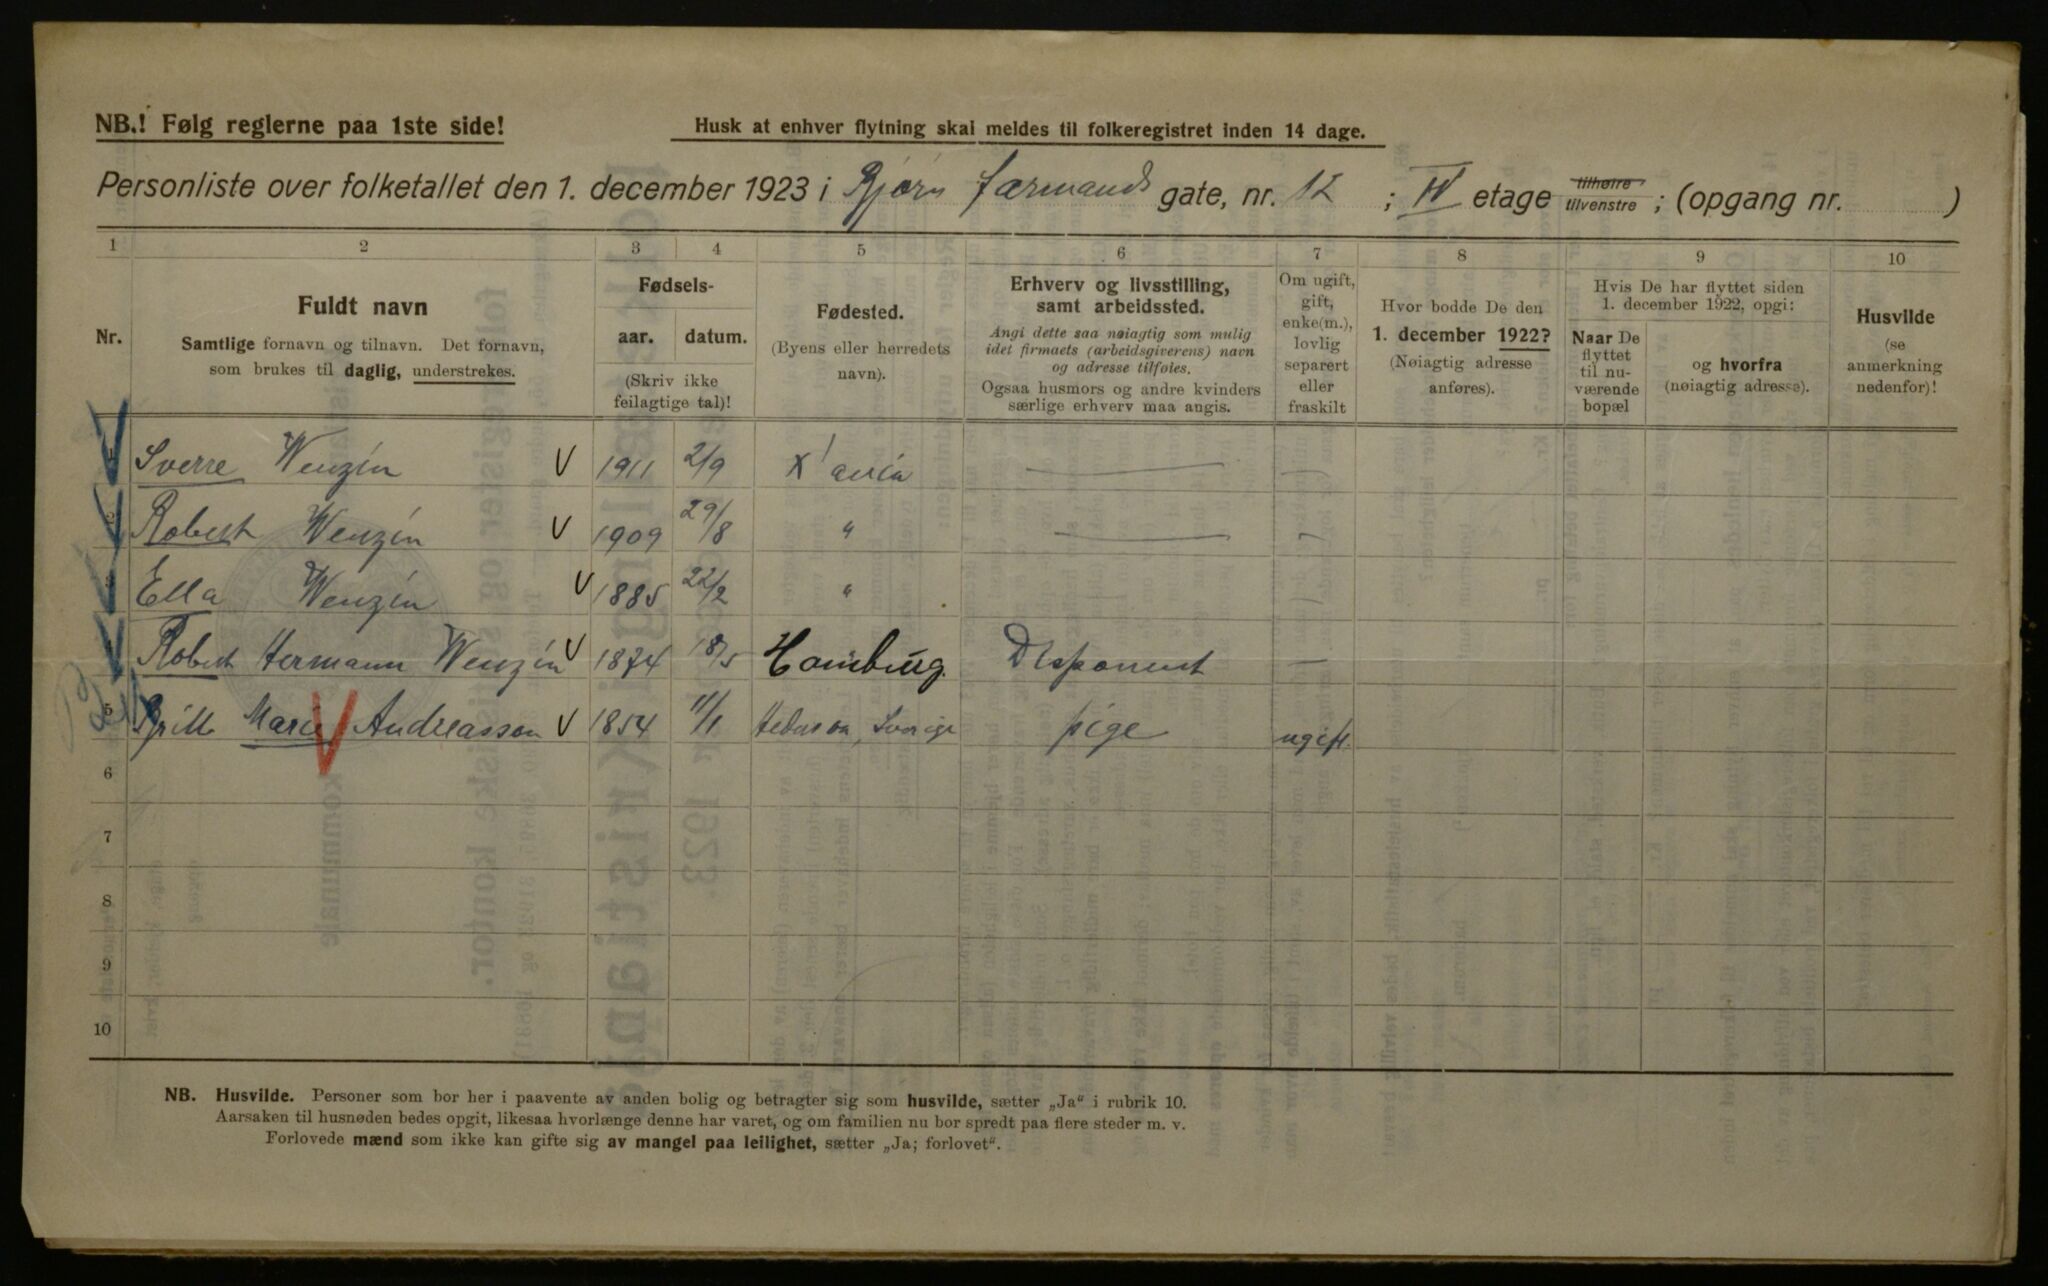 NB.! Følg reglerne paa 1ste side!
Husk at enhver flytning skal meldes til folkeregistret inden 14 dage.
Personliste over folketallet den 1. december 1923 i Bjørn Farmands gate, nr. 12 ; IV etage tilhøire tilvenstre ; (opgang nr. )
1 2 3 4 5 6 7 8 9 10
Nr.
Fuldt navn
Samtlige fornavn og tilnavn. Det fornavn,
som brukes til daglig, understrekes.
Fødsels-
aar. datum.
(Skriv ikke
feilagtige tal)!
Fødested.
(Byens eller herredets
navn).
Erhverv og livsstilling,
samt arbeidssted.
Angi dette saa nøiagtig som mulig
idet firmaets (arbeidsgiverens) navn
og adresse tilføies.
Ogsaa husmors og andre kvinders
særlige erhverv maa angis.
Om ugift,
gift,
enke(m.),
lovlig
separert
eller
fraskilt
Hvor bodde De den
1. december 1922?
(Nøiagtig adresse
anføres).
Hvis De har flyttet siden
1. december 1922, opgi:
Naar De
flyttet
til nu-
værende
bopæl
og hvorfra
(nøiagtig adresse).
Husvilde
(se
anmerkning
nedenfor)!
Sverre Wenzin V 1911 2/9 X'ania
Robert Wenzin V 1909 29/8 "
Ella Wenzin V 1885 22/2 "
Robert Hermann Wenzin V 1874 18/5 Hamburg. Disponent
5 Marie Andreasson V 1854 11/1 Sverige pige ugift.
6
7
8
9
10
NB. Husvilde. Personer som bor her i paavente av anden bolig og betragter sig som husvilde, sætter „Ja“ i rubrik 10.
Aarsaken til husnøden bedes opgit, likesaa hvorlænge denne har varet, og om familien nu bor spredt paa flere steder m. v.
Forlovede mænd som ikke kan gifte sig av mangel paa leilighet, sætter „Ja; forlovet“.